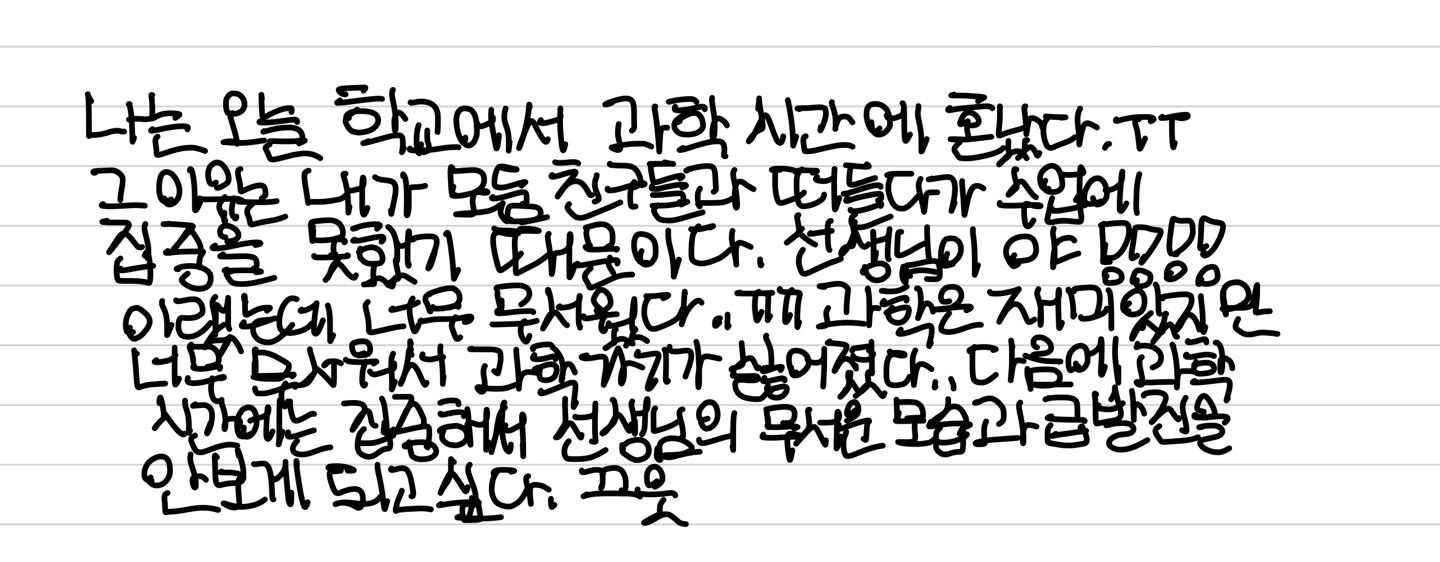 나는 오늘 학교에서 과학 시간에 혼났다.ㅜㅜ
그 이유는 내가 모둠 친구들과 떠들다가 수업에
집중을 못했기 때문이다. 선생님이 야!!!!
이랬는데 너무 무서웠다..ㅠㅠ 과학은 재미있지만
너무 무서워서 과학 가기가 싫어졌다.. 다음에 과학
시간에는 집중해서 선생님의 무서운 모습과 급발진을
안보게 되고 싶다. 끄읏